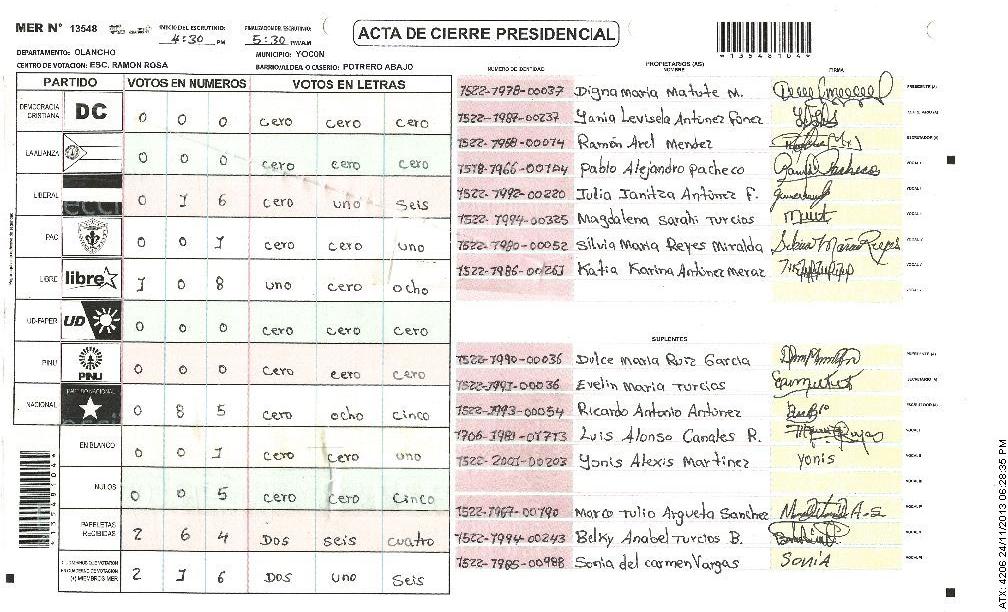 MER N° 13548
INICIO DEL ESCRUTINIO: 4:30 PM
FINALIZACION DEL ESCRUTINIO: 5:30 PM/AM
ACTA DE CIERRE PRESIDENCIAL
*13548104*
DEPARTAMENTO: OLANCHO
MUNICIPIO: YOCON
CENTRO DE VOTACION: ESC. RAMON ROSA
BARRIO/ALDEA O CASERIO: POTRERO ABAJO
PARTIDO VOTOS EN NUMEROS VOTOS EN LETRAS
DEMOCRACIA CRISTIANA DC 0 0 0 cero cero cero
LA ALIANZA 0 0 0 cero cero cero
LIBERAL 0 1 6 cero uno seis
PAC 0 0 1 cero cero uno
LIBRE libre 1 0 8 uno cero ocho
UD-FAPER UD 0 0 0 cero cero cero
PINU PINU 0 0 0 cero cero cero
NACIONAL 0 8 5 cero ocho cinco
EN BLANCO 0 0 1 cero cero uno
NULOS 0 0 5 cero cero cinco
PAPELETAS RECIBIDAS 2 6 4 Dos seis cuatro
(+) MIEMBROS MER 2 1 6 Dos uno seis
*13548104*
PROPIETARIOS (AS)
NUMERO DE IDENTIDAD NOMBRE FIRMA
1522-1978-00037 Digna maria Matute M. PRESIDENTE (A)
1522-1987-00237 Yania Levisela Antunez Ponez
1522-1968-00074 Ramón Arel Mendez SECRETARIO (A)
Pablo Alejandro pacheco Pacheco VOCAL I
1522-1992-00220 Julia Janitza Antúnez F.
1522-1994-00325 Magdalena Sarahi Turcios
1522-1980-00052 Silvia Maria Reyes Miralda
1522-1986-00261 Katia Karina Antunez meraz
SUPLENTES
1522-1990-00036 Dulce Maria Ruiz Garcia
1522-1991-00036 Evelin Maria Turcios
1522-1993-00054 Ricardo Antonio Antunez
Luis Alonso Canales R.
1522-2001-00203 Yonis Alexis Martinez Yonis
1522-1967-00190 Marco Tulio Argueta Sanchez
1522-1994-00243 Belky Anabel Turcios B.
1522-1985-00988 Sonia del carmen Vargas SONIA
ATX: 4206 24/11/2013 06:28:35 PM